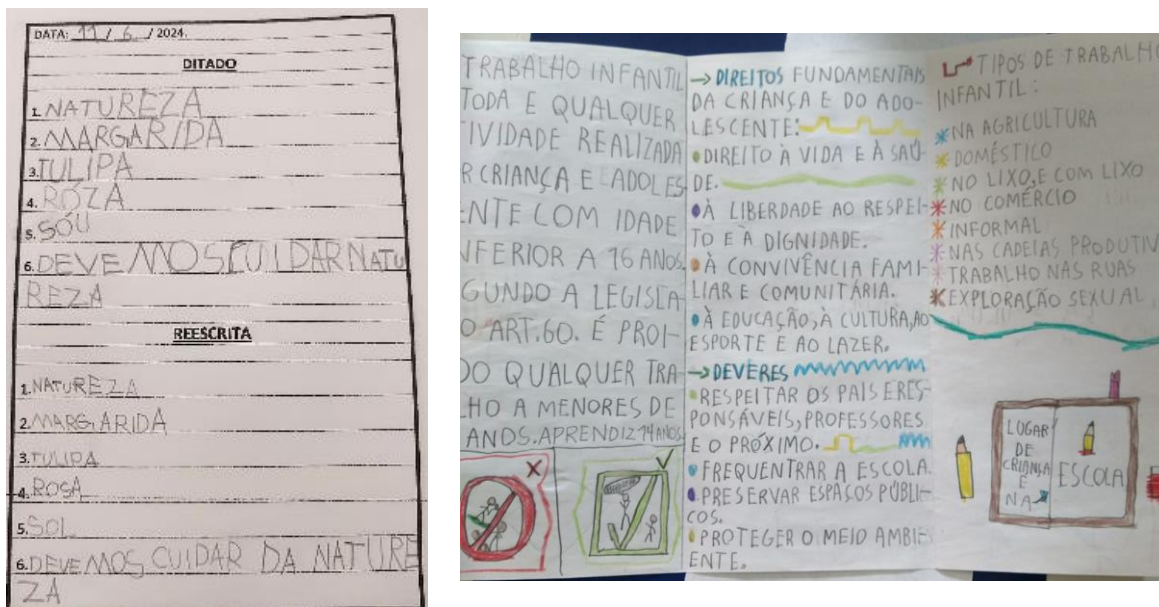 DATA: 11 / 6 / 2024.
DITADO
1. NATUREZA
2. MARGARIDA
3. TULIPA
4. ROZA
5. SÓU
6. DEVEMOS CUIDAR NATU
REZA
REESCRITA
1. NATUREZA
2. MARGARIDA
3. TULIPA
4. ROSA
5. SOL
6. DEVEMOS CUIDAR DA NATURE
ZA
TRABALHO INFANTIL
TODA E QUALQUER
TIVIDADE REALIZADA
R CRIANÇA E ADOLES
ENTE COM IDADE
NFERIOR A 16 ANOS.
GUNDO A LEGISLA-
O ART.60. É PROI-
DO QUALQUER TRA-
LHO A MENORES DE
ANOS. APRENDIZ 14 ANOS
→ DIREITOS FUNDAMENTAIS
DA CRIANÇA E DO ADO-
LESCENTE:
• DIREITO À VIDA E À SAÚ-
DE.
• À LIBERDADE AO RESPEI-
TO E À DIGNIDADE.
• À CONVIVÊNCIA FAMI-
LIAR E COMUNITÁRIA.
• À EDUCAÇÃO, À CULTURA, AO
ESPORTE E AO LAZER.
→ DEVERES
• RESPEITAR OS PAIS E RES-
PONSÁVEIS, PROFESSORES
E O PRÓXIMO.
• FREQUENTRAR A ESCOLA.
• PRESERVAR ESPAÇOS PÚBLI-
COS.
• PROTEGER O MEIO AMBI-
ENTE.
TIPOS DE TRABALHO
INFANTIL:
* NA AGRICULTURA
* DOMÉSTICO
* NO LIXO, E COM LIXO
* NO COMÉRCIO
* INFORMAL
* NAS CADEIAS PRODUTIV
* TRABALHO NAS RUAS
* EXPLORAÇÃO SEXUAL
LOGAR
DE
CRIANÇA
É
NA
ESCOLA